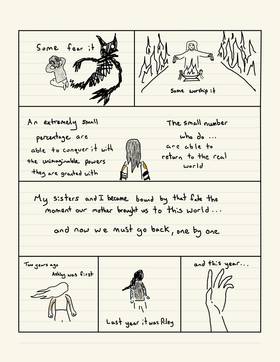 Some fear it
Some worship it
An extremely small
percentage are
able to conquer it with
the unimaginable powers
they are granted with
The small number
who do...
are able to
return to the real
world
My sisters and I became bound by that fate the
moment our mother brought us to this world...
and now we must go back, one by one
Two years ago
Ashley was first
Last year it was Riley
and this year...